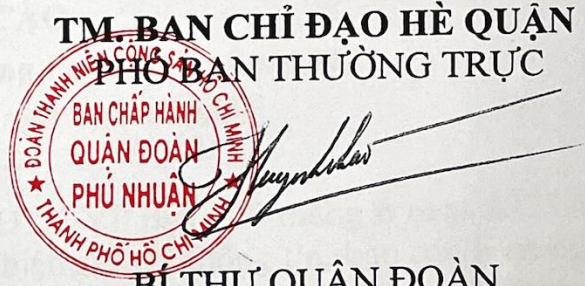 TM. BAN CHỈ ĐẠO HÈ QUẬN
PHÓ BAN THƯỜNG TRỰC
ĐOÀN THANH NIÊN CỘNG SẢN HỒ CHÍ MINH
BAN CHẤP HÀNH
QUẬN ĐOÀN
PHÚ NHUẬN
★ THÀNH PHỐ HỒ CHÍ MINH ★
BÍ THƯ QUẬN ĐOÀN